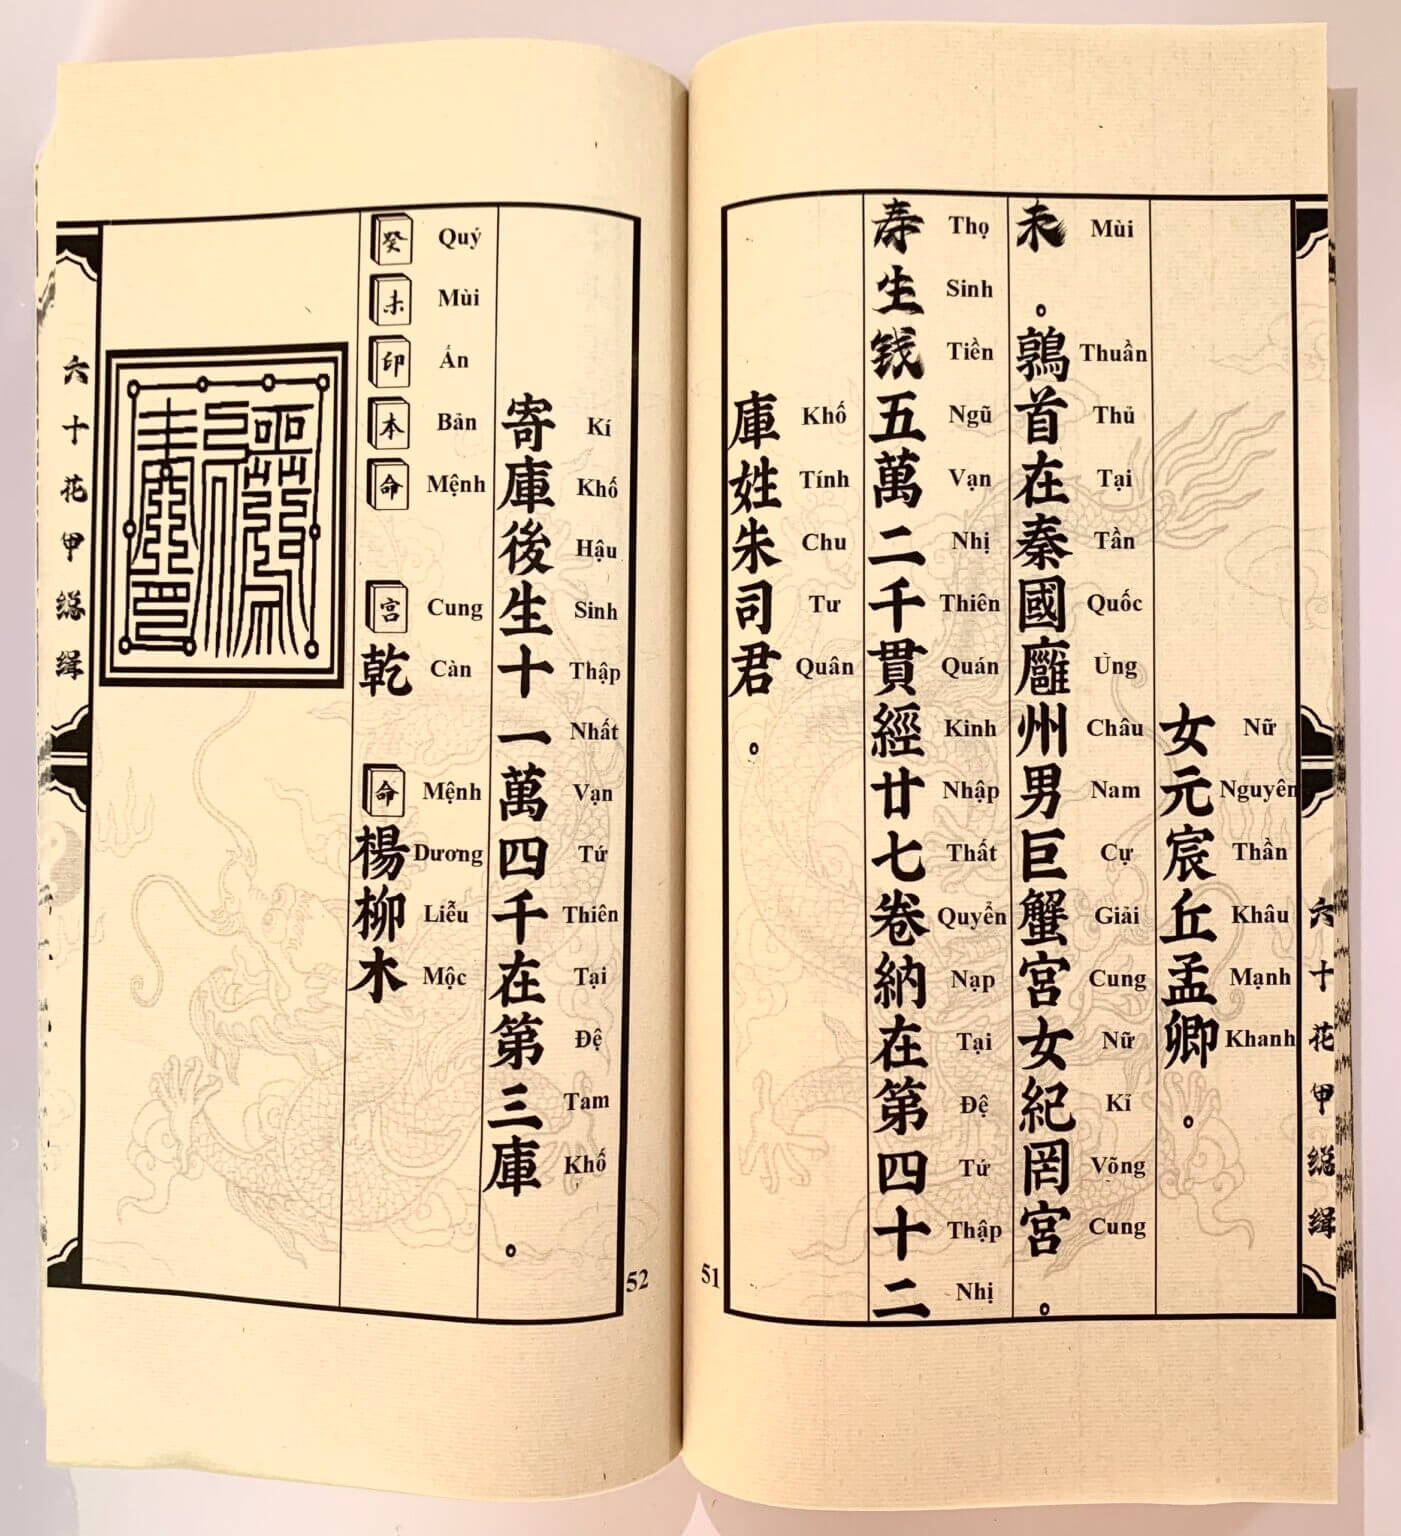 六十花甲總緝
女元宸丘孟卿。
Nữ Nguyên Thần Khâu Mạnh Khanh
未。鶉首在秦國廱州男巨蟹宮女紀罔宮。
Mùi Thuần Thủ Tại Tần Quốc Ủng Châu Nam Cự Giải Cung Nữ Kỉ Võng Cung
寿生钱五萬二千貫經廿七卷納在第四十二
Thọ Sinh Tiền Ngũ Vạn Nhị Thiên Quán Kinh Nhập Thất Quyển Nạp Tại Đệ Tứ Thập Nhị
庫姓朱司君。
Khố Tính Chu Tư Quân
51
寄庫後生十一萬四千在第三庫。
Kí Khố Hậu Sinh Thập Nhất Vạn Tứ Thiên Tại Đệ Tam Khố
癸未印本命 宮乾 命楊柳木
Quý Mùi Ấn Bản Mệnh Cung Càn Mệnh Dương Liễu Mộc
六十花甲總緝
52